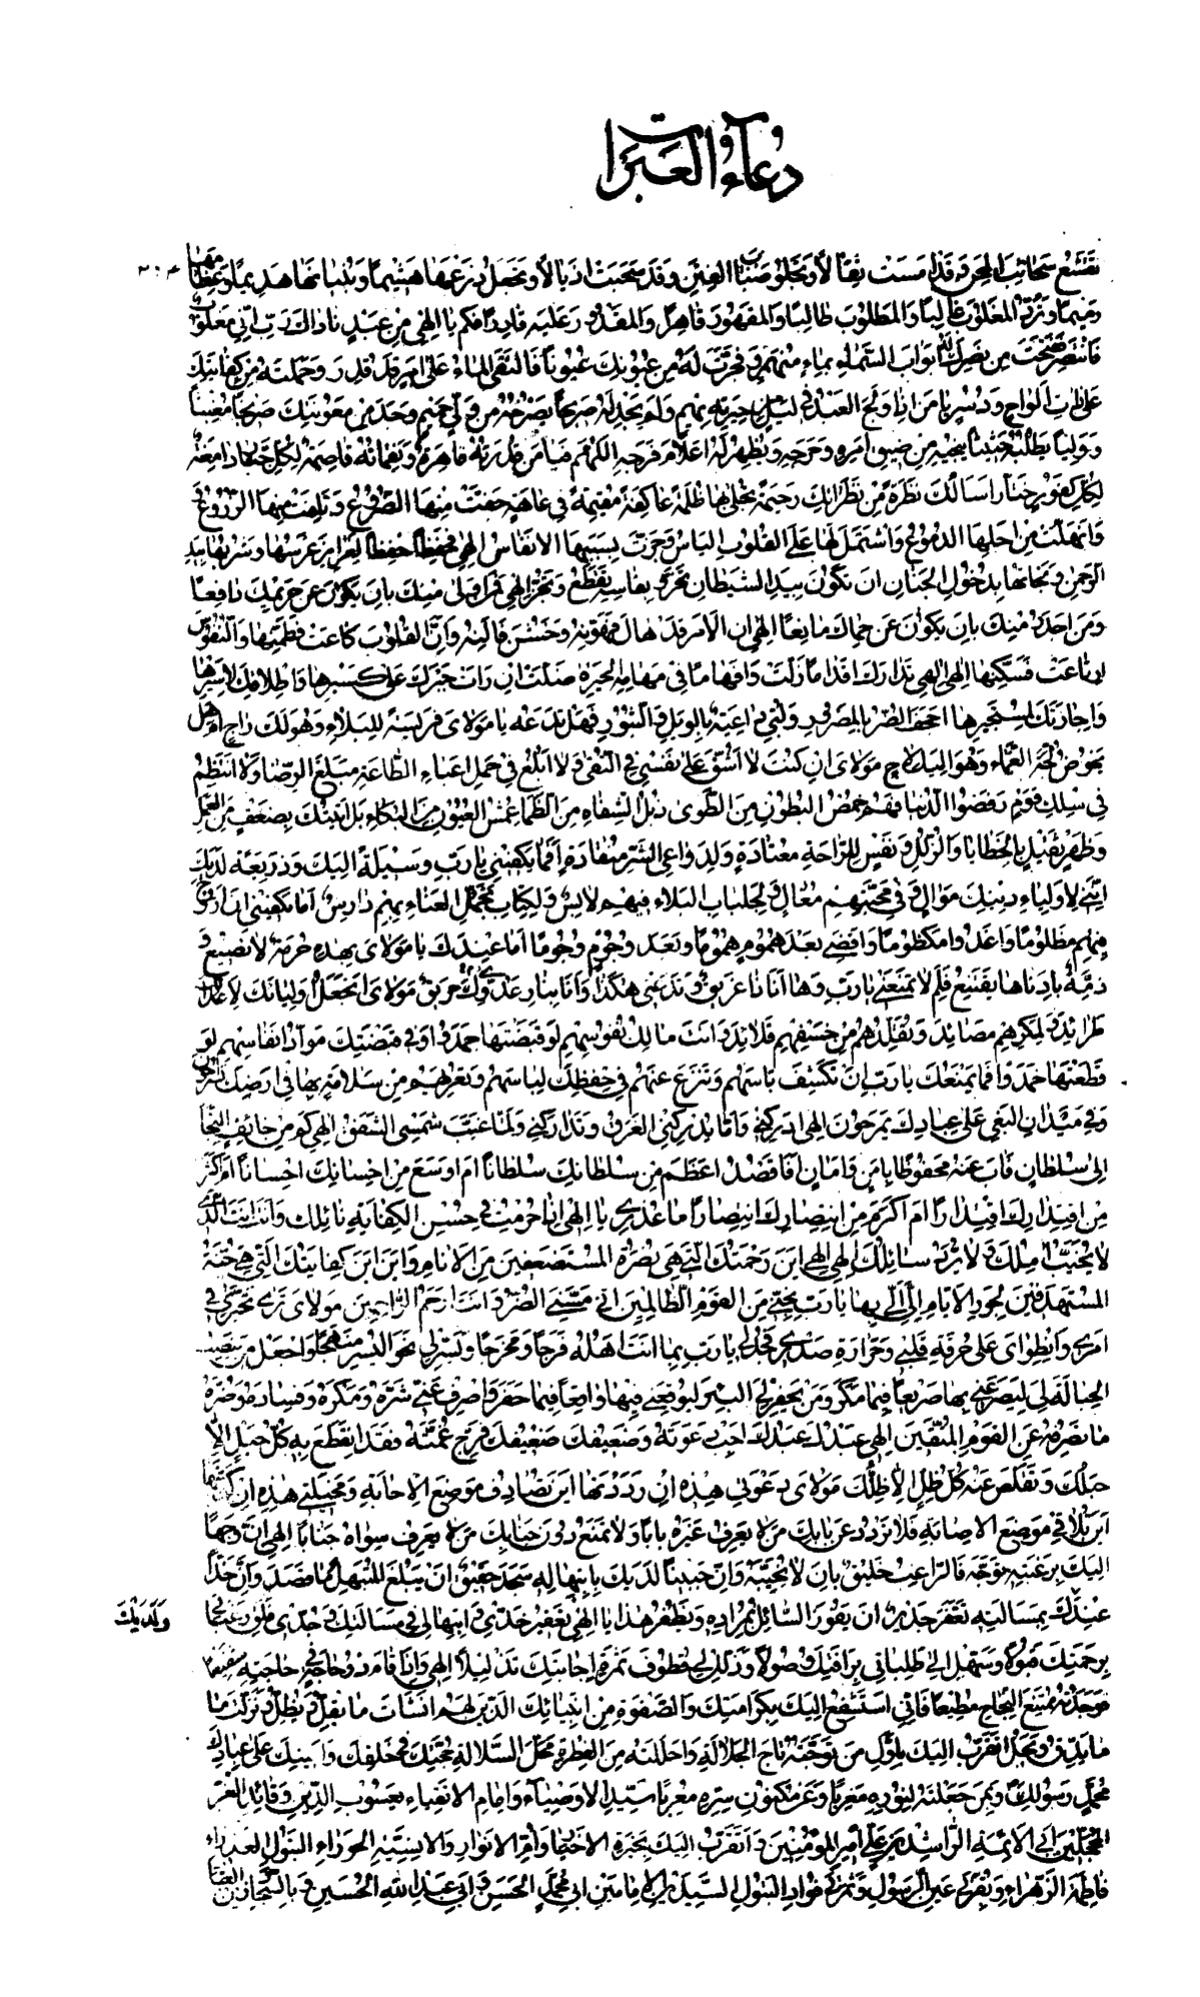 دعاء العبرات
٢٠٤
تقشع سحائب المحن وقد امست ثقالا وتجلو ضباب الفتن وقد سحبت اذيالا وتجعل زرعها هشيما وبنيانها هديما وعظامها
رميما وترد المغلوب غالبا والمطلوب طالبا والمقهور قاهرا والمقدور عليه قادرا فكم يا الهي من عبد ناداك رب اني مغلوب
فانتصر ففتحت من نصرك له ابواب السماء بماء منهمر وفجرت له من عيونك عيونا فالتقى الماء على امر قد قدر وحملته من كفايتك
على ذات الواح ودسر يا من اذا ولج العبد في ليل من حيرته بهيم ولم يجد له صريخا يصرخه من ولي حميم وجد من معونتك صريخا مغيثا
ووليا يطلبه حثيثا ينجيه من ضيق امره وحرجه ويظهر له اعلام فرجه اللهم فيا من قدرته قاهرة ونقماته قاصمة لكل جبار دامغة
لكل كفور ختار اسالك نظرة من نظراتك رحيمة تجلي بها ظلمة عاكفة مقيمة في عاهة جفت منها الضروع وتلفت منها الزروع
وانهملت من اجلها الدموع واشتمل لها على القلوب الياس وجرت بسببها الانفاس الهي فحفظا حفظا لغرائز غرسها وشربها بيد
الرحمن ونجاتها بدخول الجنان ان تكون بيد الشيطان تحز وبفاسه تقطع وتجز الهي فمن اولى منك بان يكون عن حريمك دافعا
ومن اجدر منك بان يكون عن حماك مانعا الهي ان الامر قد هال فهونه وخشن فالنه وان القلوب كاعت فطمنها والنفوس
ارتاعت فسكنها الهي الهي تدارك اقداما زلت وافهاما في مهامه الحيرة ضلت ان رات جبرك على كسيرها واطلاقك لاسيرها
واجارتك لمستجيرها اجحف الضر بالمضرور ولبى داعيه بالويل والثبور فهل تدعه يا مولاى فريسة للبلاء وهو لك راج ام هل
يخوض لجة الغماء وهو اليك لاج مولاى ان كنت لا اشق على نفسي في التقى ولا ابلغ في حمل اعباء الطاعة مبلغ الرضا ولا انتظم
في سلك قوم رفضوا الدنيا فهم خمص البطون من الطوى ذبل الشفاه من الظما عمش العيون من البكاء بل اتيتك بضعف من العمل
وظهر ثقيل بالخطايا والزلل ونفس للراحة معتادة ولدواعي الشر منقادة افما يكفيني يا رب وسيلة اليك وذريعة لديك
انني لاولياء دينك موال وفي محبتهم مغال ولجلباب البلاء فيهم لابس ولكتاب تحمل العناء بهم دارس اما يكفيني ان اروح
فيهم مظلوما واغدو مكظوما واقضي بعد هموم هموما وبعد وجوم وجوما اما عندك يا مولاى بهذه حرمة لا تضيع و
ذمة بادناها يقتنع فلم لا تمنعني يا رب وها انا ذا غريق وتدعني هكذا وانا بنار عدوك حريق مولاى اتجعل اوليائك لاعدائك
طرائد ولمكرهم مصائد وتقلدهم من خسفهم قلائد وانت مالك نفوسهم لو قبضتها جمدوا وفي قبضتك مواد انفاسهم لو
قطعتها خمدوا فما يمنعك يا رب ان تكشف باسهم وتنزع عنهم في حفظك لباسهم وتعريهم من سلامة بها في ارضك يمرحون
وفي ميدان البغي على عبادك يمرحون الهي ادركني ولما يدركني الغرق وتداركني ولما غيبت شمسي الشفق الهي كم من خائف التجا
الى سلطان فاب عنه محفوفا بامن وامان افاقصد اعظم من سلطانك سلطانا ام اوسع من احسانك احسانا ام اكثر
من اقتدارك اقتدارا ام اكرم من انتصارك انتصارا ما عذري يا الهي اذا حرمت في حسن الكفاية نائلك وانت الذي
لا يخيب املك ولا يرد سائلك الهي الهي اين رحمتك التي هي نصرة المستضعفين من الانام واين اين كفايتك التي هي جنة
المستهدفين لجور الايام الي الي بها يا رب نجني من القوم الظالمين اني مسني الضر وانت ارحم الراحمين مولاى ترى تحيري في
امري وانطواى على حرقة قلبي وحرارة صدري فجد لي يا رب بما انت اهله فرجا ومخرجا ويسر لي نحو اليسر منهجا واجعل من ينصب
الحبالة لي ليصرعني بها صريعا فيما مكر ومن يحفر لي البئر ليوقعني فيها واقعا فيما حفر واصرف عني شره ومكره وفساده وضره
ما تصرفه عن القوم المتقين الهي عبدك عبدك اجب دعوته وضعيفك ضعيفك فرج غمته فقد انقطع به كل حبل الا
حبلك وتقلص عنه كل ظل الا ظلك مولاى دعوتي هذه ان رددتها اين تصادف موضع الاجابة ومخيلتي هذه ان كذبتها
اين تلاقي موضع الاصابة فلا تردد عن بابك من لا يعرف غيره بابا ولا تمنع دون جنابك من لا يعرف سواه جنابا الهي ان وجها
اليك برغبته توجه فالراغب خليق بان لا تخيبه وان جبينا لديك بابتهاله سجد حقيق ان يبلغ المبتهل ما قصد وان خدا
عندك بمسالته تعفر جدير ان يفوز السائل بمراده ويظفر هذا يا الهي تعفير خدي وابتهالي في مسالتك وجدي فلق رغباتي
ولدیك
برحمتك قبولا وسهل الي طلباتي برافتك وصولا وذلل لي قطوف ثمرة اجابتك تذليلا الهي واذا قام ذو حاجة في حاجته شفيعا
فوجدته ممتنع النجاح مطيعا فاني استشفع اليك بكرامتك والصفوة من انبيائك الذين لهم انشات ما يقل ويظل ونزلت ما
ما يدق ويجل اتقرب اليك باول من توجته تاج الجلالة واحللته من الفطرة محل السلالة حجتك في خلقك وامينك على عبادك
محمد رسولك وبمن جعلته لنوره مغربا وعن مكنون سره معربا سيد الاوصياء وامام الاتقياء يعسوب الدين وقائد الغر
المحجلين ابي الائمة الراشدين علي امير المؤمنين واتقرب اليك بخيرة الاخيار وام الانوار والانسية الحوراء البتول العذراء
فاطمة الزهراء وبقرتي عين الرسول وثمرتي فؤاد البتول السيدين الامامين ابي محمد الحسن وابي عبد الله الحسين وبالسجاد زين العباد